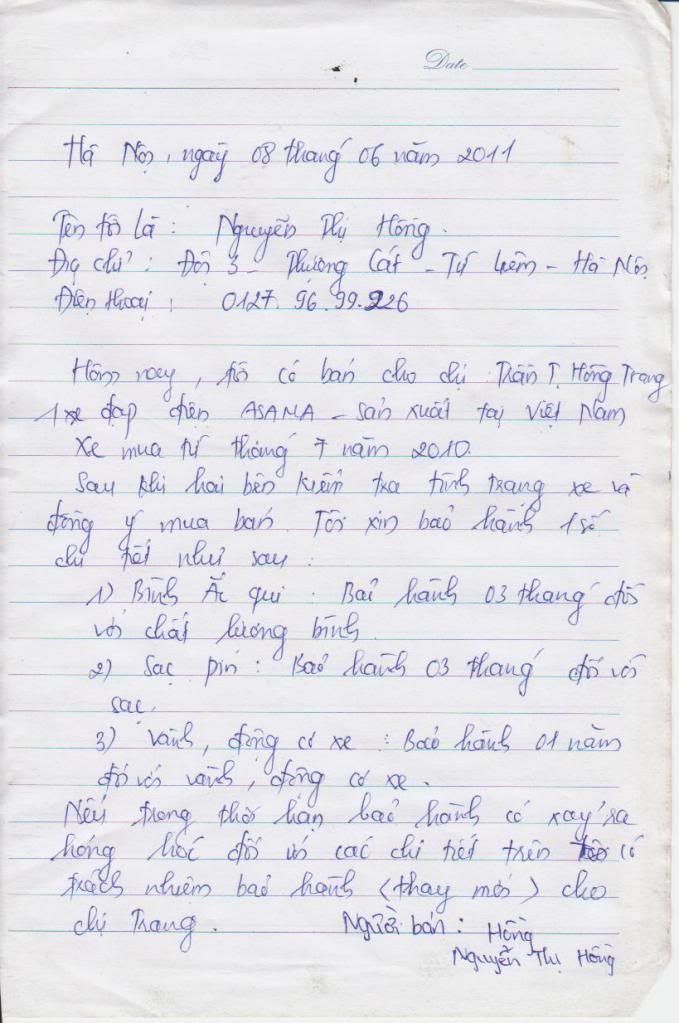 Date
Hà Nội, ngày 08 tháng 06 năm 2011
Tên tôi là : Nguyễn Thị Hồng.
Địa chỉ : Đội 3 - Thượng Cát - Từ Liêm - Hà Nội
Điện thoại : 0127. 96. 99. 226
Hôm nay, tôi có bán cho chị Trần T. Hồng Trang
1 xe đạp điện ASAMA - sản xuất tại Việt Nam
Xe mua từ tháng 7 năm 2010.
Sau khi hai bên kiểm tra tình trạng xe và
đồng ý mua bán. Tôi xin bảo hành 1 số
chi tiết như sau :
1) Bình Ắc qui : Bảo hành 03 tháng đối
với chất lượng bình.
2) Sạc pin : Bảo hành 03 tháng đối với
sạc.
3) Vành, động cơ xe : Bảo hành 01 năm
đối với vành, động cơ xe.
Nếu trong thời hạn bảo hành có xảy ra
hỏng hóc đối với các chi tiết trên tôi có
trách nhiệm bảo hành (thay mới) cho
chị Trang. Người bán : Hồng
Nguyễn Thị Hồng